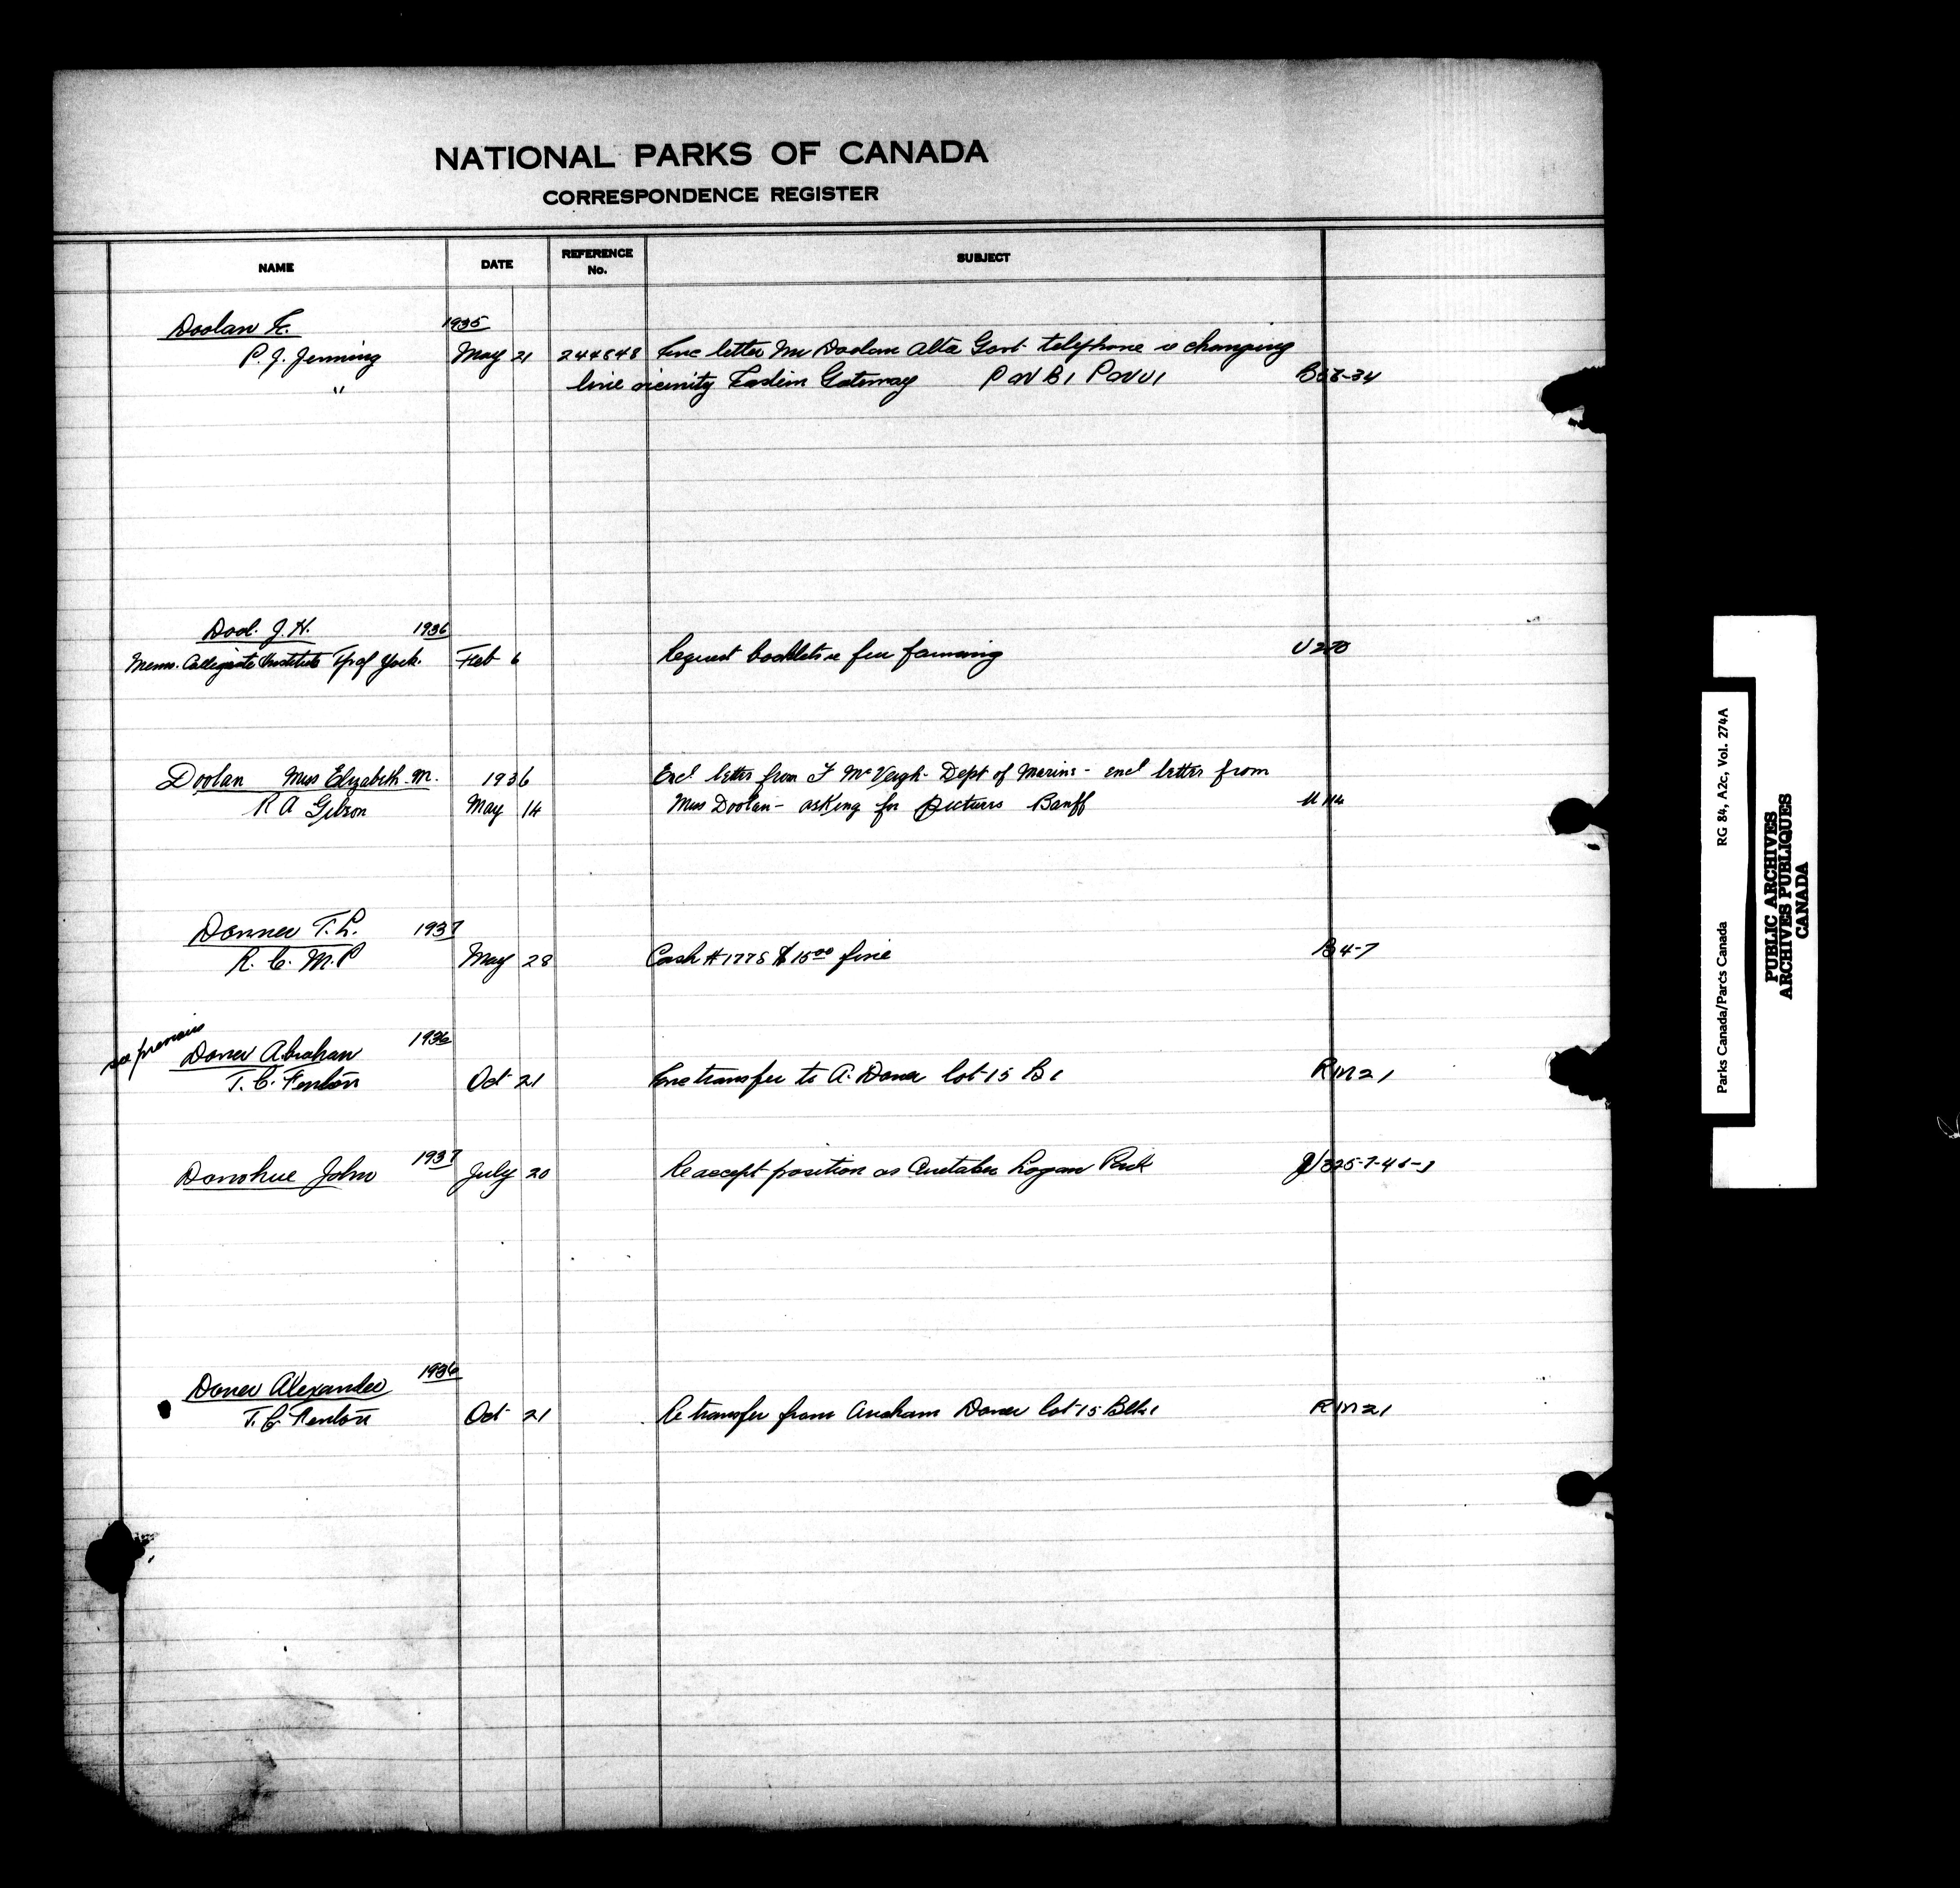 NATIONAL PARKS OF CANADA
CORRESPONDENCE REGISTER
NAME DATE REFERENCE No. SUBJECT
Doolan F. 1935
P. J. Jenning May 21 244848 Enc letter Mr Doolan Alta Govt telephone re changing
" line vicinity Eastern Gateway
Dool. J. H. 1936
Mem. Collegiate Institute Tp of York. Feb 6 Request booklets re fur farming U 270
Doolan Miss Elizabeth. M. 1936 Encl letter from F McVeigh - Dept of Marine - encl letter from
R A Gibson May 14 Miss Doolan - asking for pictures Banff U 114
Donner T. L. 1937
R. C. M. P May 28 Cash # 1775 $15.00 fine B 4-7
see previous
Doner Abraham 1936
T. C. Fenton Oct 21 Enc transfer to A. Doner lot 15 B 1 RM21
Donohue John 1937 July 20 Re accept position as Caretaker Logan Park
Doner Alexander 1936
T. C. Fenton Oct 21 Re transfer from Doner lot 15 Blk 1 RM21
Parks Canada/Parcs Canada RG 84, A2c, Vol. 274A
PUBLIC ARCHIVES
ARCHIVES PUBLIQUES
CANADA